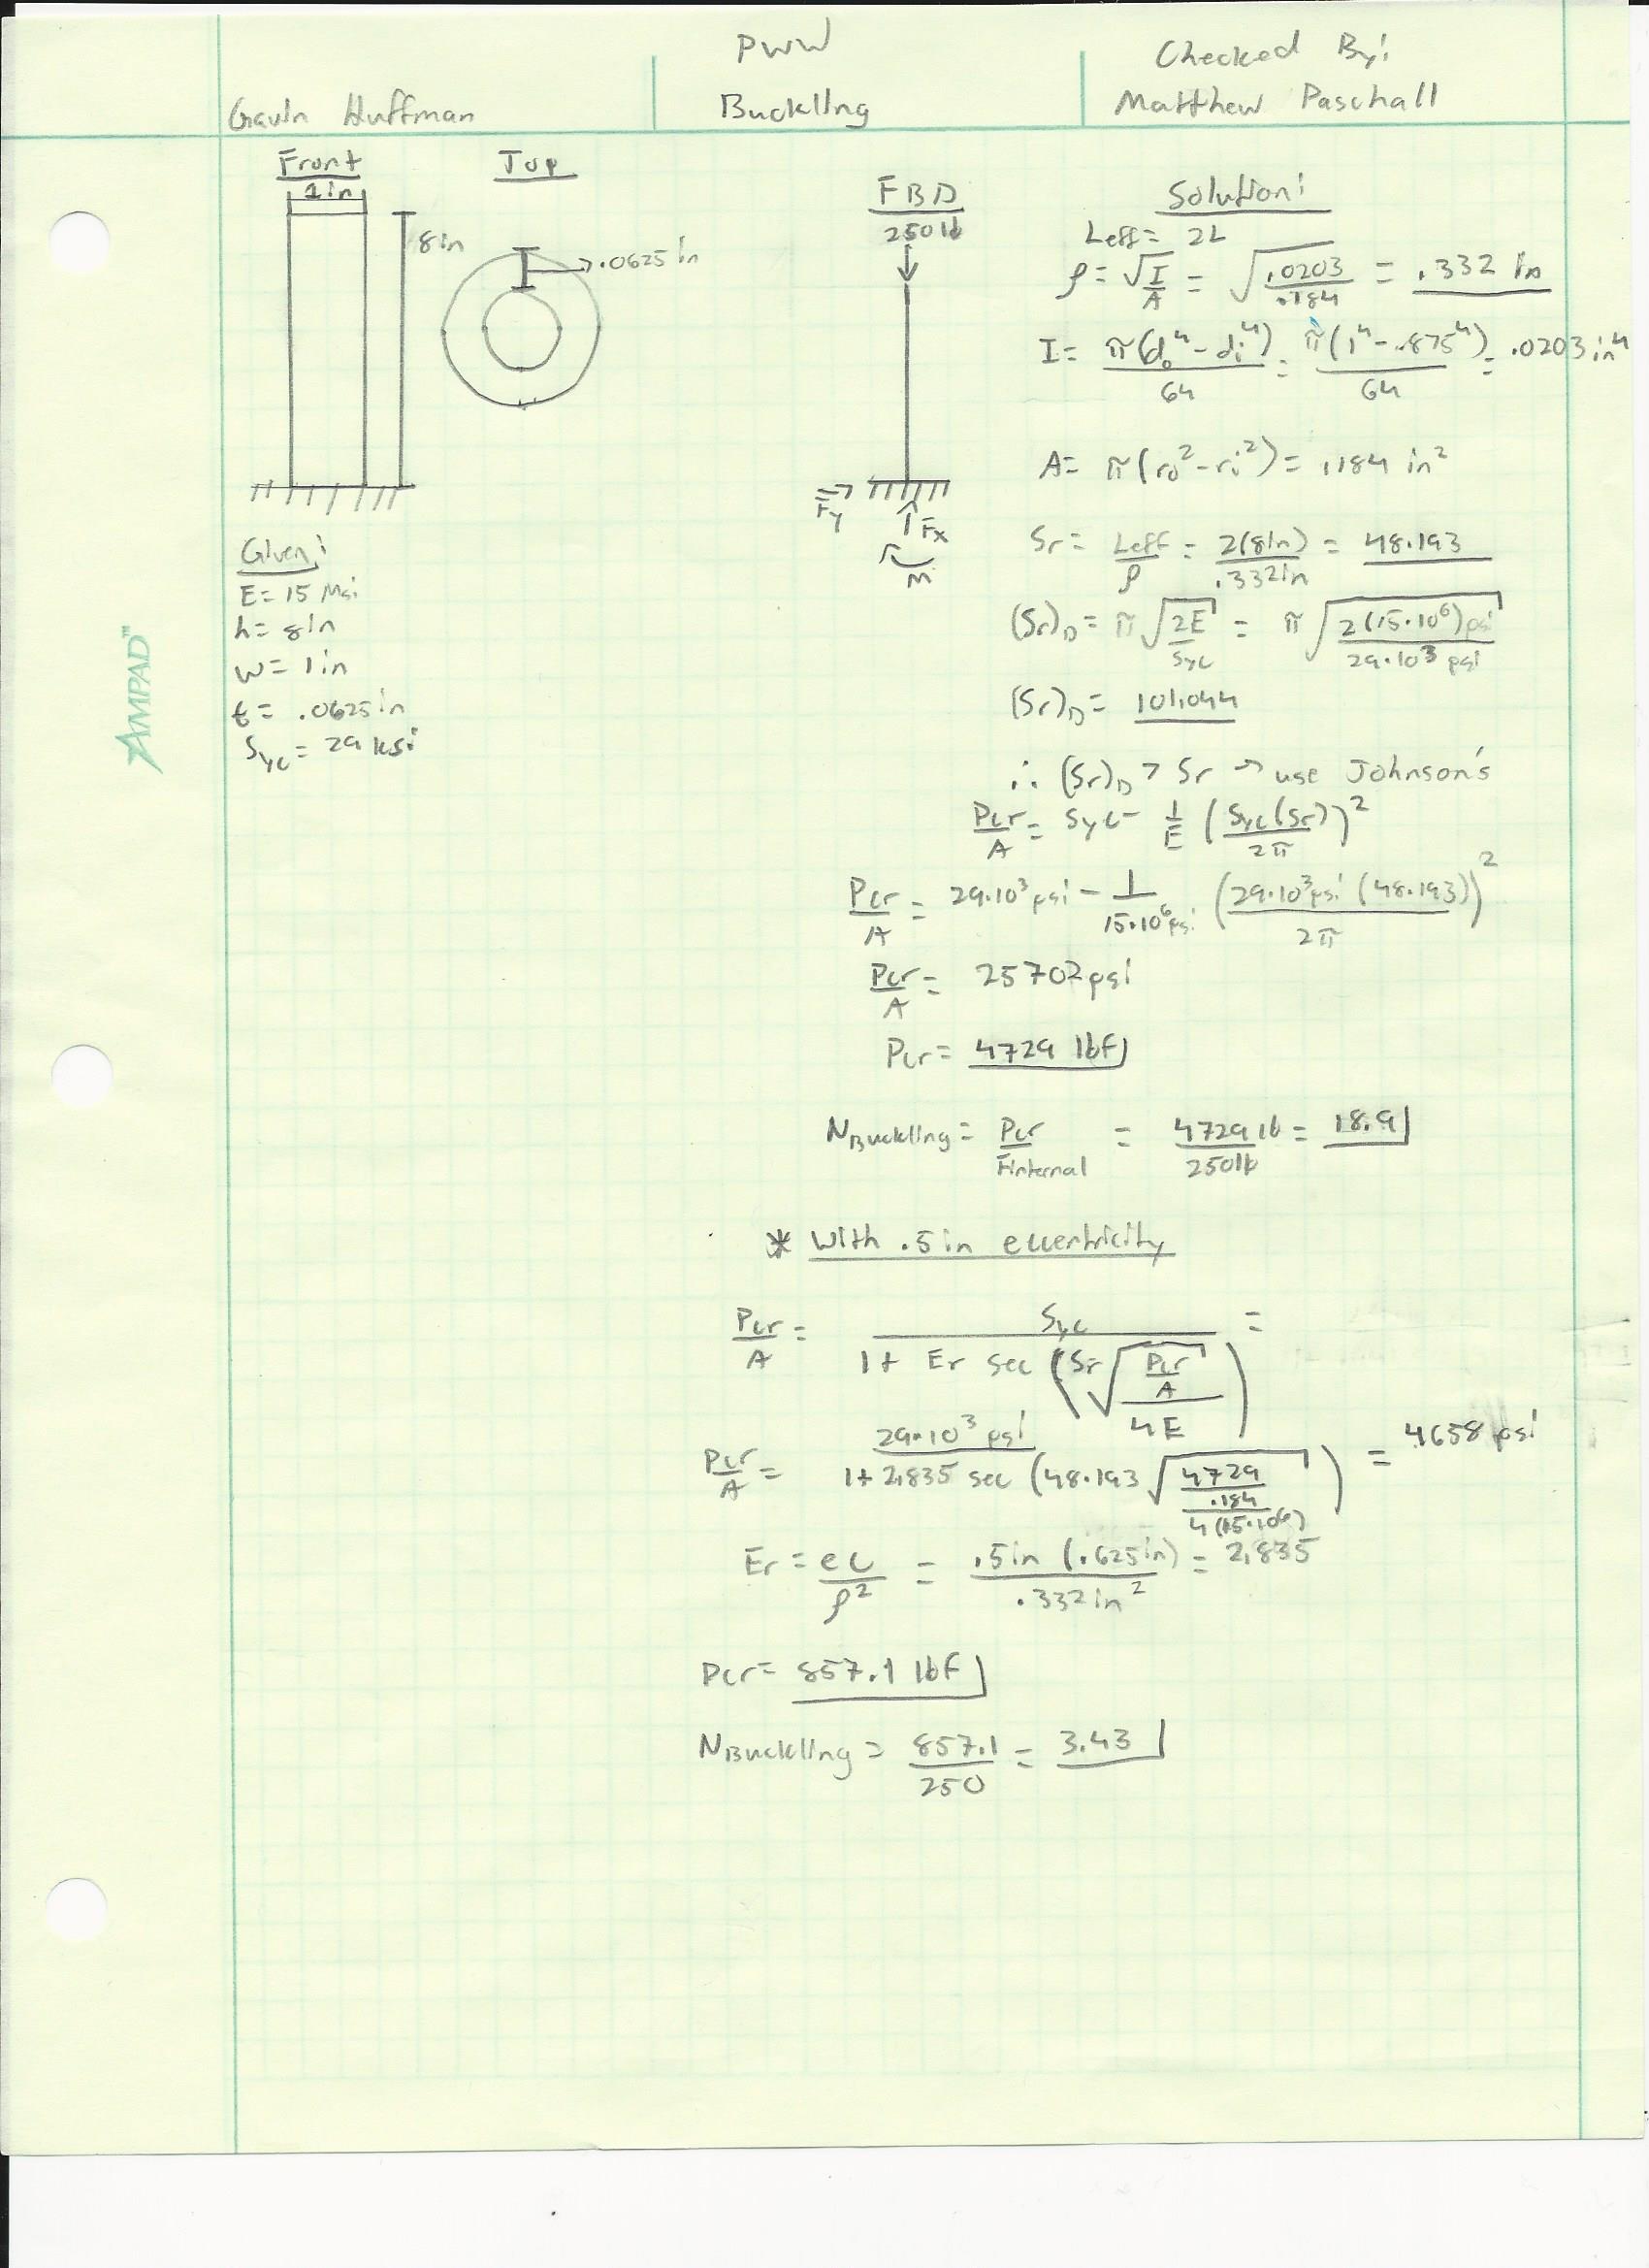 PWW
Checked By:
Gavin Huffman
Buckling
Matthew Paschall
Front
Top
1in
8in
.0625in
FBD
250lb
Fy
Fx
M
Given:
E= 15 Msi
h= 8in
w= 1in
t= .0625in
Syc= 29 ksi
AMPAD™
Solution:
Leff= 2L
ρ= √(I/A) = √(.0203/.184) = .332 in
I= π(do⁴-di⁴)/64 = π(1⁴-.875⁴)/64 = .0203in⁴
A= π(ro²-ri²)= .184 in²
Sr= Leff/ρ = 2(8in)/.332in = 48.193
(Sr)D= π√(2E/Syc) = π√(2(15·10⁶)psi/29·10³ psi)
(Sr)D= 101.044
∴ (Sr)D > Sr → use Johnson's
Pcr/A = Syc- 1/E (Syc(Sr)/2π)²
Pcr/A = 29·10³psi - 1/15·10⁶psi (29·10³psi (48.193)/2π)²
Pcr/A = 25702psi
Pcr= 4729 lbf
NBuckling= Pcr/Finternal = 4729lb/250lb = 18.9
* With .5in eccentricity
Pcr/A = Syc/(1+ Er sec (Sr√((Pcr/A)/4E))) =
Pcr/A = 29·10³ psi/(1+2.835 sec (48.193√((4729/.184)/4(15·10⁶)))) = 4658psi
Er= ec/ρ² = .5in (.625in)/.332in² = 2.835
Pcr= 857.1 lbf
NBuckling= 857.1/250 = 3.43